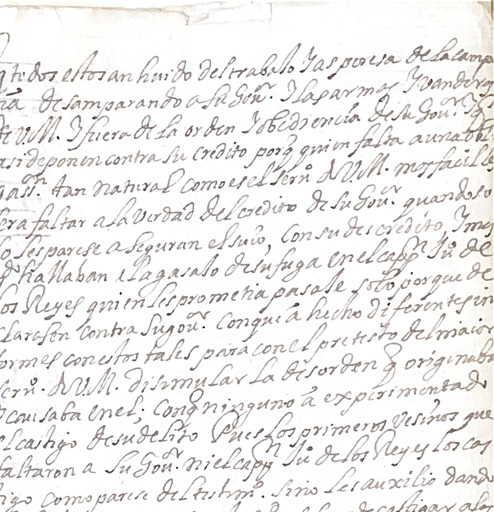 q todos estos an huido del trabalo I aspereza de la camp
ña desamparando a su Gou.r I las armas I vanderas
de V.M. I fuera de la orden I obediencia de su Gou.r I
asi deponen contra su credito porq quien falta a una obli
gaz.n tan natural como es el seru.o d V.M. mas facil les
sera faltar a la verdad del credito de su Gou.r quando so
lo les parese a seguran el suio, con su descredito, I mas
q hallaban el agasalo de su fuga en el cap.n Ju.o de
los Reyes quien les prometia pasale solo porque de
claresen contra su gou.r. Con que a hecho diferentes in
formes con estos tales para con el pretisto del maior
seru.o d V.M. disimular la disorden q originaba
I causaba en el; Conq ninguno a experimentado
el castigo de su delito Pues los primeros vesinos que
faltaron a su Gou.r ni el cap.n Ju.o de los Reyes los cas
tigo como parese del testim.o sino les auxilio dando
de castigar a los